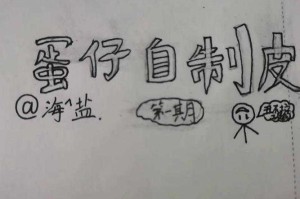 蛋仔自制皮
@海^盐. 第一期